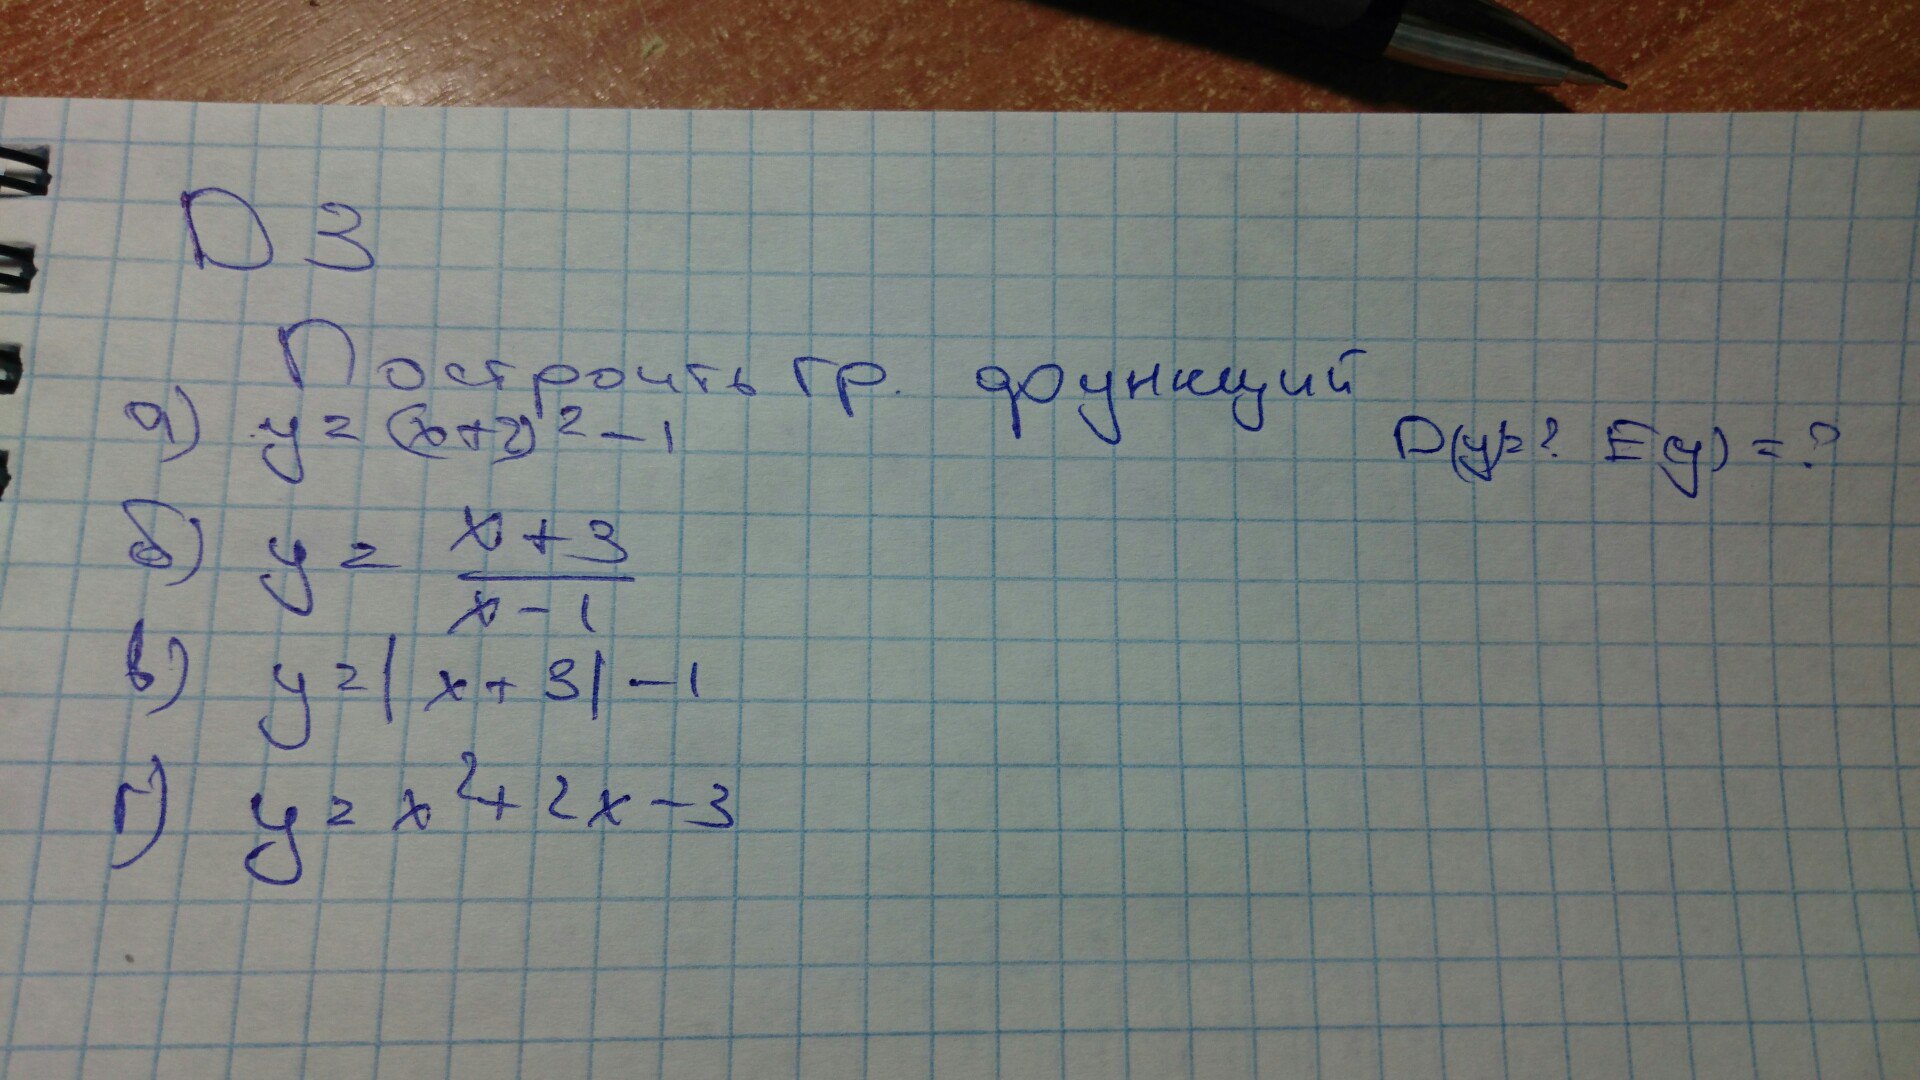 DЗ
Построить гр. функций
D(y)=? E(y)=?
а) y=(x+2)²-1
б) y= x+3
x-1
в) y=|x+3|-1
г) y=x²+2x-3